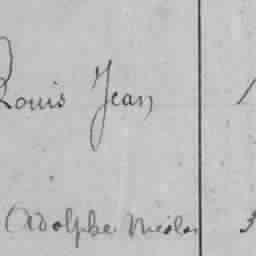 Louis Jean 1
Adolphe Nicolas 3